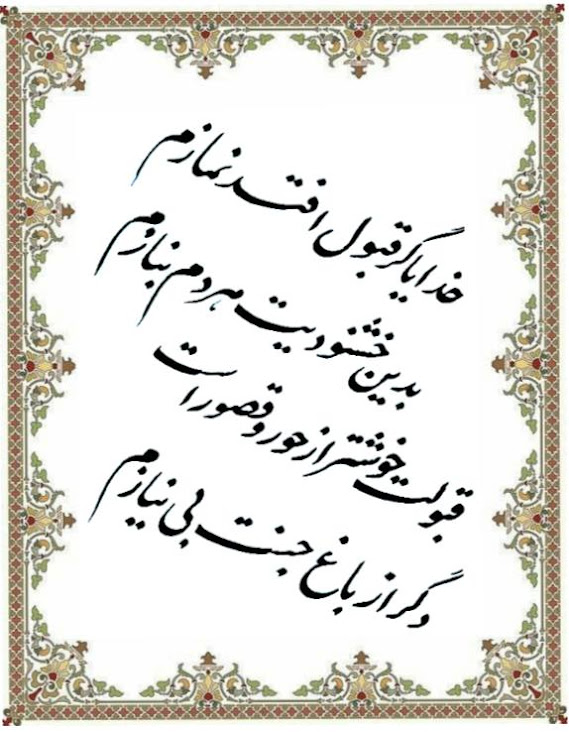 خدایا گر قبول افتد نمازم
بدین خشنودیت هر دم بنازم
قبولت خوشتر از حور و قصور است
دگر از باغ جنت بی نیازم